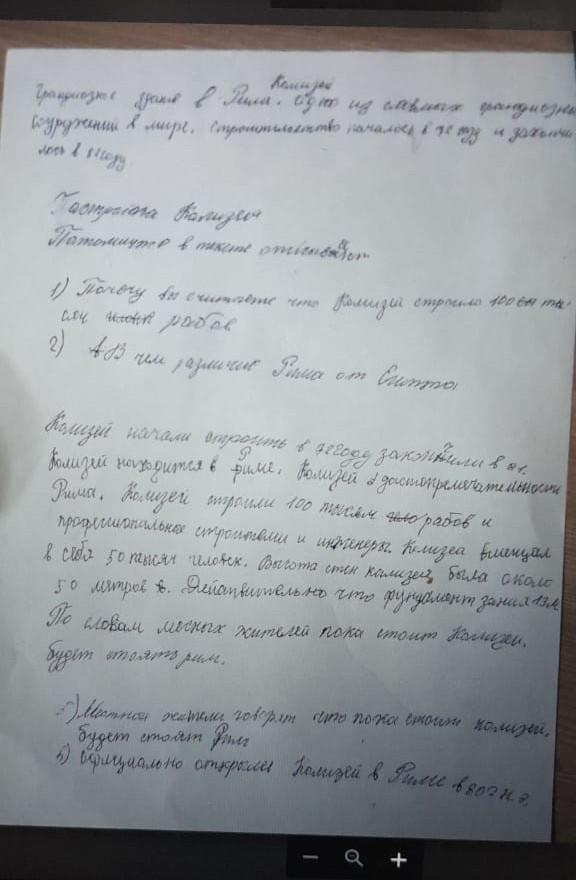 Колизей
Грандиозное здание в Риме. Одно из самых грандиозных
сооружений в мире. Строительство началось в 72 году и закончи
лось в 81 году
Построика Колизея
Патомичто в тексте
1) Почему вы считаете что Колизей строило 100 ты
сяч рабов
2) В чем различие Рима от Египта
Колизей начали строить в 72 году закончили в 81.
Колизей находится в Риме. Колизей достопремечательности
Рима. Колизей строили 100 тысяч рабов и
професиональные строители и инженеры. Колизеа вмещал
в себя 50 тысяч человек. Высота стен колизея была около
50 метров. Действительно что фундамент здания 13м
По словам месных жителей пока стоит Колизей,
будет стоять рим.
5) Местные жители говорят что пока стоит колизей,
будет стоят Рим
6) Официально открылся Колизей в Риме в 80г н.э.